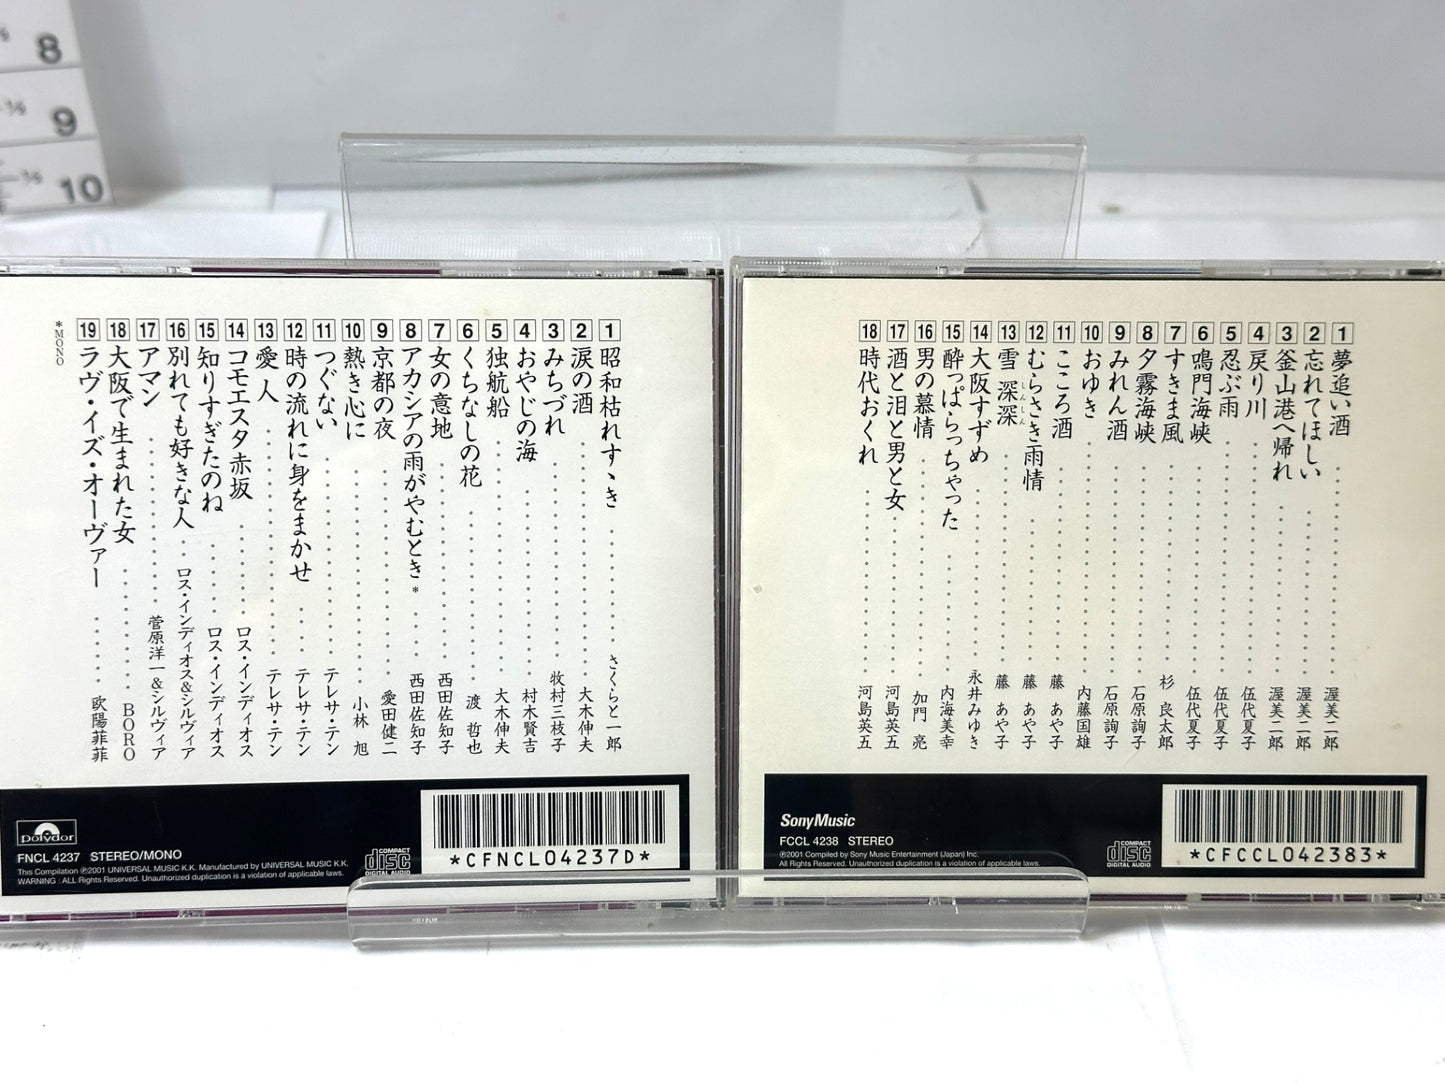 8
9
10
1 昭和枯れすゝき さくらと一郎
2 涙の酒 大木伸夫
3 みちづれ 牧村三枝子
4 おやじの海 村木賢吉
5 独航船 大木伸夫
6 くちなしの花 渡 哲也
7 女の意地 西田佐知子
8 アカシアの雨がやむとき* 西田佐知子
9 京都の夜 愛田健二
10 熱き心に 小林 旭
11 つぐない テレサ・テン
12 時の流れに身をまかせ テレサ・テン
13 愛人 テレサ・テン
14 コモエスタ赤坂 ロス・インディオス
15 知りすぎたのね ロス・インディオス
16 別れても好きな人 ロス・インディオス&シルヴィア
17 アマン 菅原洋一&シルヴィア
18 大阪で生まれた女 BORO
19 ラヴ・イズ・オーヴァー 欧陽菲菲
*MONO
polydor
FNCL 4237 STEREO/MONO
This Compilation ℗2001 UNIVERSAL MUSIC K.K. Manufactured by UNIVERSAL MUSIC K.K.
WARNING : All Rights Reserved. Unauthorized duplication is a violation of applicable laws.
COMPACT
disc
DIGITAL AUDIO
*CFNCL04237D*
1 夢追い酒 渥美二郎
2 忘れてほしい 渥美二郎
3 釜山港へ帰れ 渥美二郎
4 戻り川 伍代夏子
5 忍ぶ雨 伍代夏子
6 鳴門海峡 伍代夏子
7 すきま風 杉 良太郎
8 夕霧海峡 石原詢子
9 みれん酒 石原詢子
10 おゆき 内藤国雄
11 こころ酒 藤 あや子
12 むらさき雨情 藤 あや子
13 雪 深深 しんしん 藤 あや子
14 大阪すずめ 永井みゆき
15 酔っぱらっちゃった 内海美幸
16 男の慕情 加門 亮
17 酒と泪と男と女 河島英五
18 時代おくれ 河島英五
SonyMusic
FCCL 4238 STEREO
℗2001 Compiled by Sony Music Entertainment (Japan) Inc.
All Rights Reserved. Unauthorized duplication is a violation of applicable laws.
COMPACT
disc
DIGITAL AUDIO
*CFCCL042383*